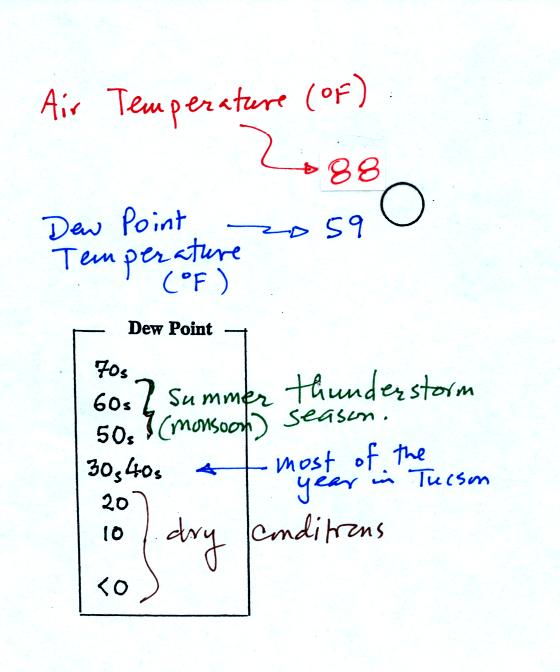 Air Temperature (°F)
88
Dew Point
Temperature
(°F)
59
Dew Point
70s
60s
50s
summer thunderstorm
(monsoon) season.
30s40s
most of the
year in Tucson
20
10
<0
dry conditions